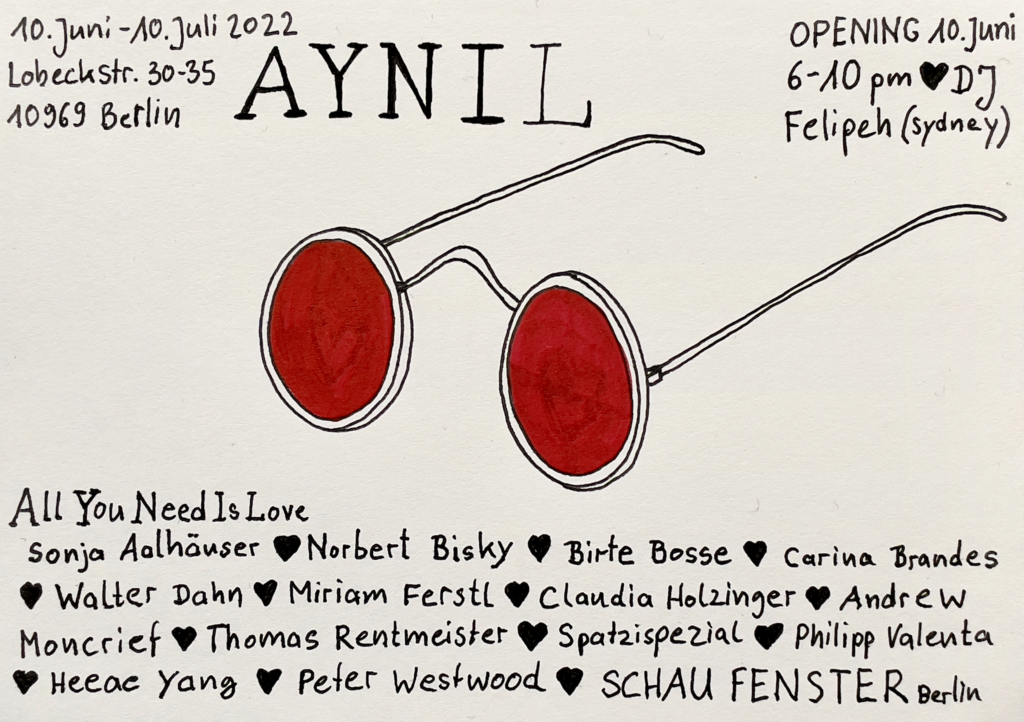 10. Juni - 10. Juli 2022
Lobeckstr. 30-35
10969 Berlin
AYNIL
OPENING 10. Juni
6-10 pm ♥ DJ
Felipeh (Sydney)
All You Need Is Love
Sonja Aalhäuser ♥ Norbert Bisky ♥ Birte Bosse ♥ Carina Brandes
♥ Walter Dahn ♥ Miriam Ferstl ♥ Claudia Holzinger ♥ Andrew
Moncrief ♥ Thomas Rentmeister ♥ Spatzispezial ♥ Philipp Valenta
♥ Heeae Yang ♥ Peter Westwood ♥ SCHAU FENSTER Berlin